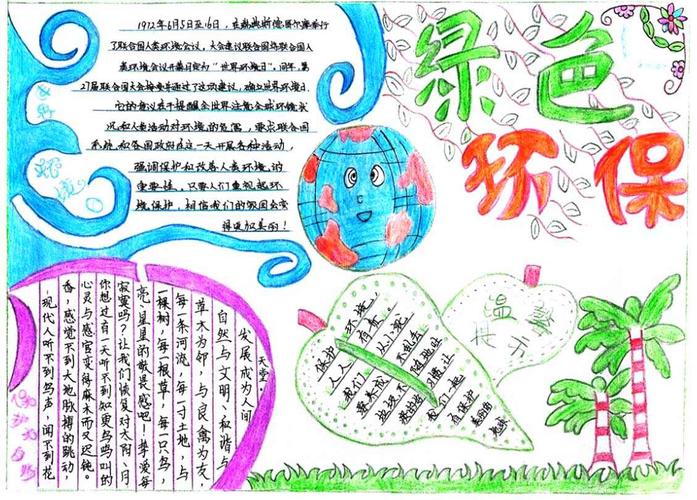 绿色
环保
1972年6月5日至16日，在瑞典斯德哥尔摩举行
了联合国人类环境会议，大会建议联合国将联合国人
类环境会议开幕日定为“世界环境日”，同年，第
27届联合国大会接受并通过了这项建议，确立世界环境日，
它的意义在于提醒全世界注意全球环境状
况和人类活动对环境的危害，要求联合国
系统和各国政府在这一天开展各种活动，
强调保护和改善人类环境的
重要性，只要人们重视起环
境保护，相信我们的祖国会变
得更加美丽！
现代人听不到鸟声，闻不到花
香，感觉不到大地脉搏的跳动，
心灵与感官变得麻木而又迟钝。
你想过有一天听不到知更鸟鸣叫的
寂寞吗？让我们恢复对太阳、月
亮、星星的敬畏感吧！孝爱每
一棵树，每一根草，每一只鸟，
每一条河流，每一寸土地，与
草木为邻，与良禽为友
自然与文明、和谐与
发展成为人间
天堂。
温馨
提示
保护环境，
人人有责。
我们从小就
要养成不乱丢
垃圾不随地吐
痰的好习惯让
我们一起
保护
美丽的
地球